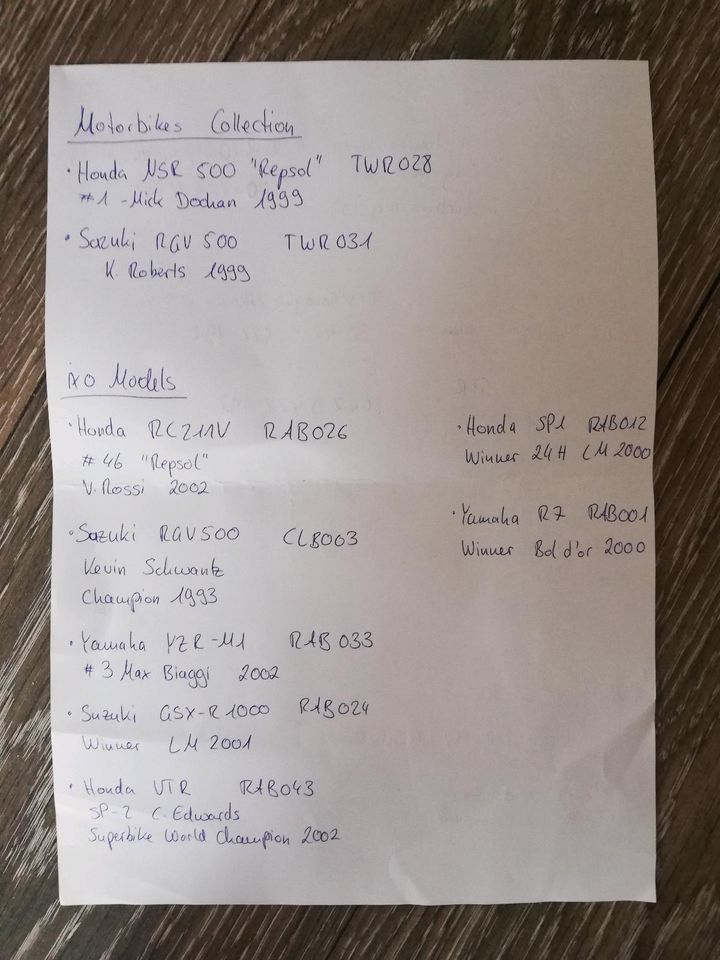 Motorbikes Collection
· Honda NSR 500 "Repsol" TWR028
#1 - Mick Doohan 1999
· Suzuki RGV 500 TWR031
K. Roberts 1999
ixo Models
· Honda RC211V RAB026
#46 "Repsol"
V. Rossi 2002
· Suzuki RGV500 CLB003
Kevin Schwantz
Champion 1993
· Yamaha YZR-M1 RAB033
#3 Max Biaggi 2002
· Suzuki GSX-R1000 RAB024
Winner LM 2001
· Honda VTR RAB043
SP-2 C. Edwards
Superbike World Champion 2002
· Honda SP1 RAB012
Winner 24H LM 2000
· Yamaha R7 RAB001
Winner Bol d'or 2000